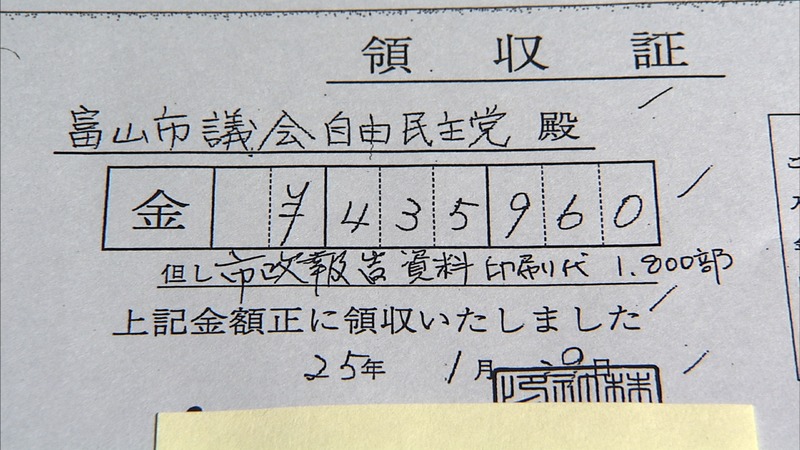 領収証
富山市議会自由民主党 殿
金 ¥435960
但し 市政報告資料印刷代 1.800部
上記金額正に領収いたしました
25年 1月